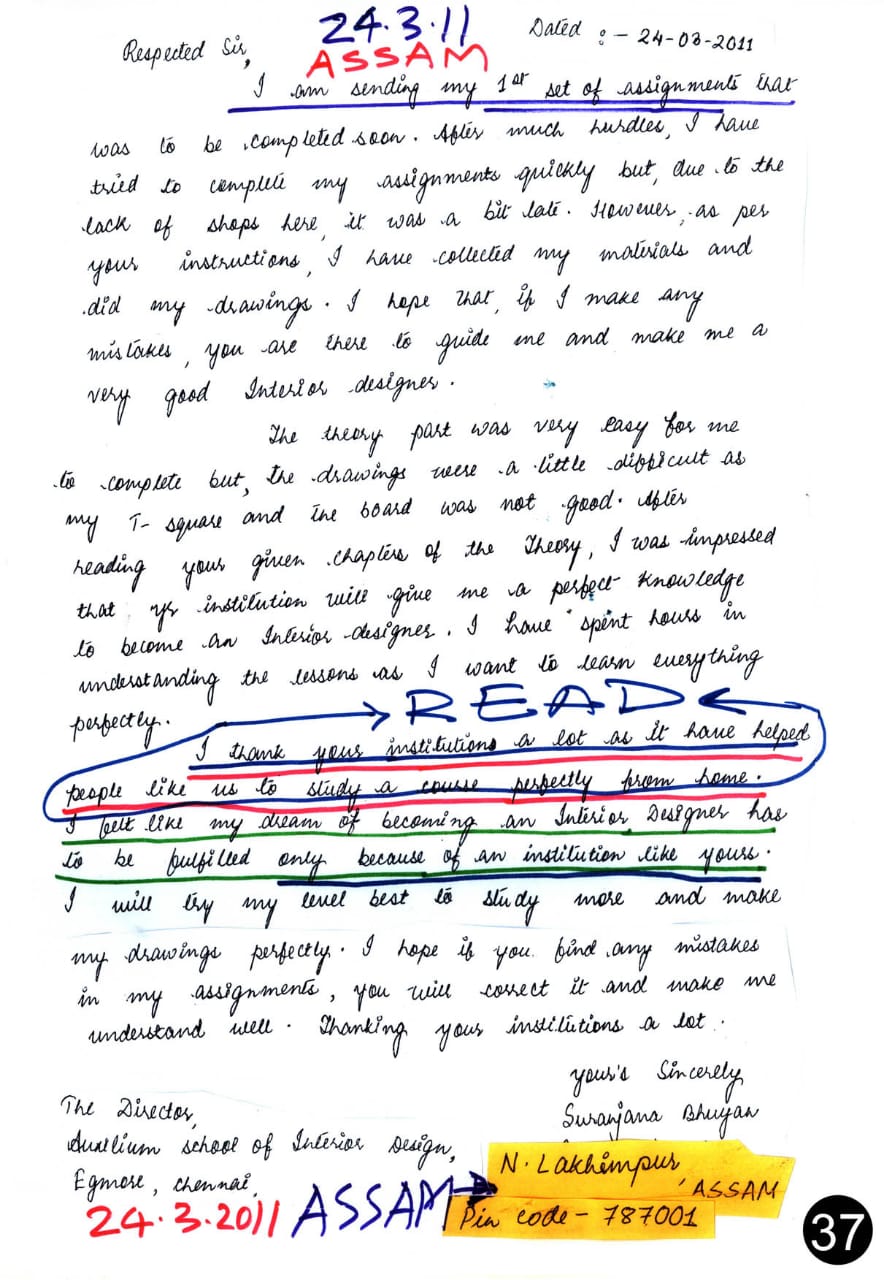 24.3.11
Dated :- 24-03-2011
Respected Sir,
ASSAM
I am sending my 1st set of assignments that
was to be completed soon. After much hurdles, I have
tried to complete my assignments quickly but, due to the
lack of shops here, it was a bit late. However, as per
your instructions, I have collected my materials and
did my drawings. I hope that, if I make any
mistakes, you are there to guide me and make me a
very good Interior designer.
The theory part was very easy for me
to complete but, the drawings were a little difficult as
my T-square and the board was not good. After
reading your given chapters of the Theory, I was impressed
that yr institution will give me a perfect knowledge
to become an Interior designer. I have spent hours in
understanding the lessons as I want to learn everything
perfectly.
READ
I thank your institutions a lot as it have helped
people like us to study a course perfectly from home.
I felt like my dream of becoming an Interior Designer has
to be fulfilled only because of an institution like yours.
I will try my level best to study more and make
my drawings perfectly. I hope if you find any mistakes
in my assignments, you will correct it and make me
understand well. Thanking your institutions a lot.
your's Sincerely
Suranjana Bhuyan
The Director,
Auxilium school of Interior Design,
Egmore, chennai,
N. Lakhimpur,
ASSAM
Pin code - 787001
24.3.2011 ASSAM
37